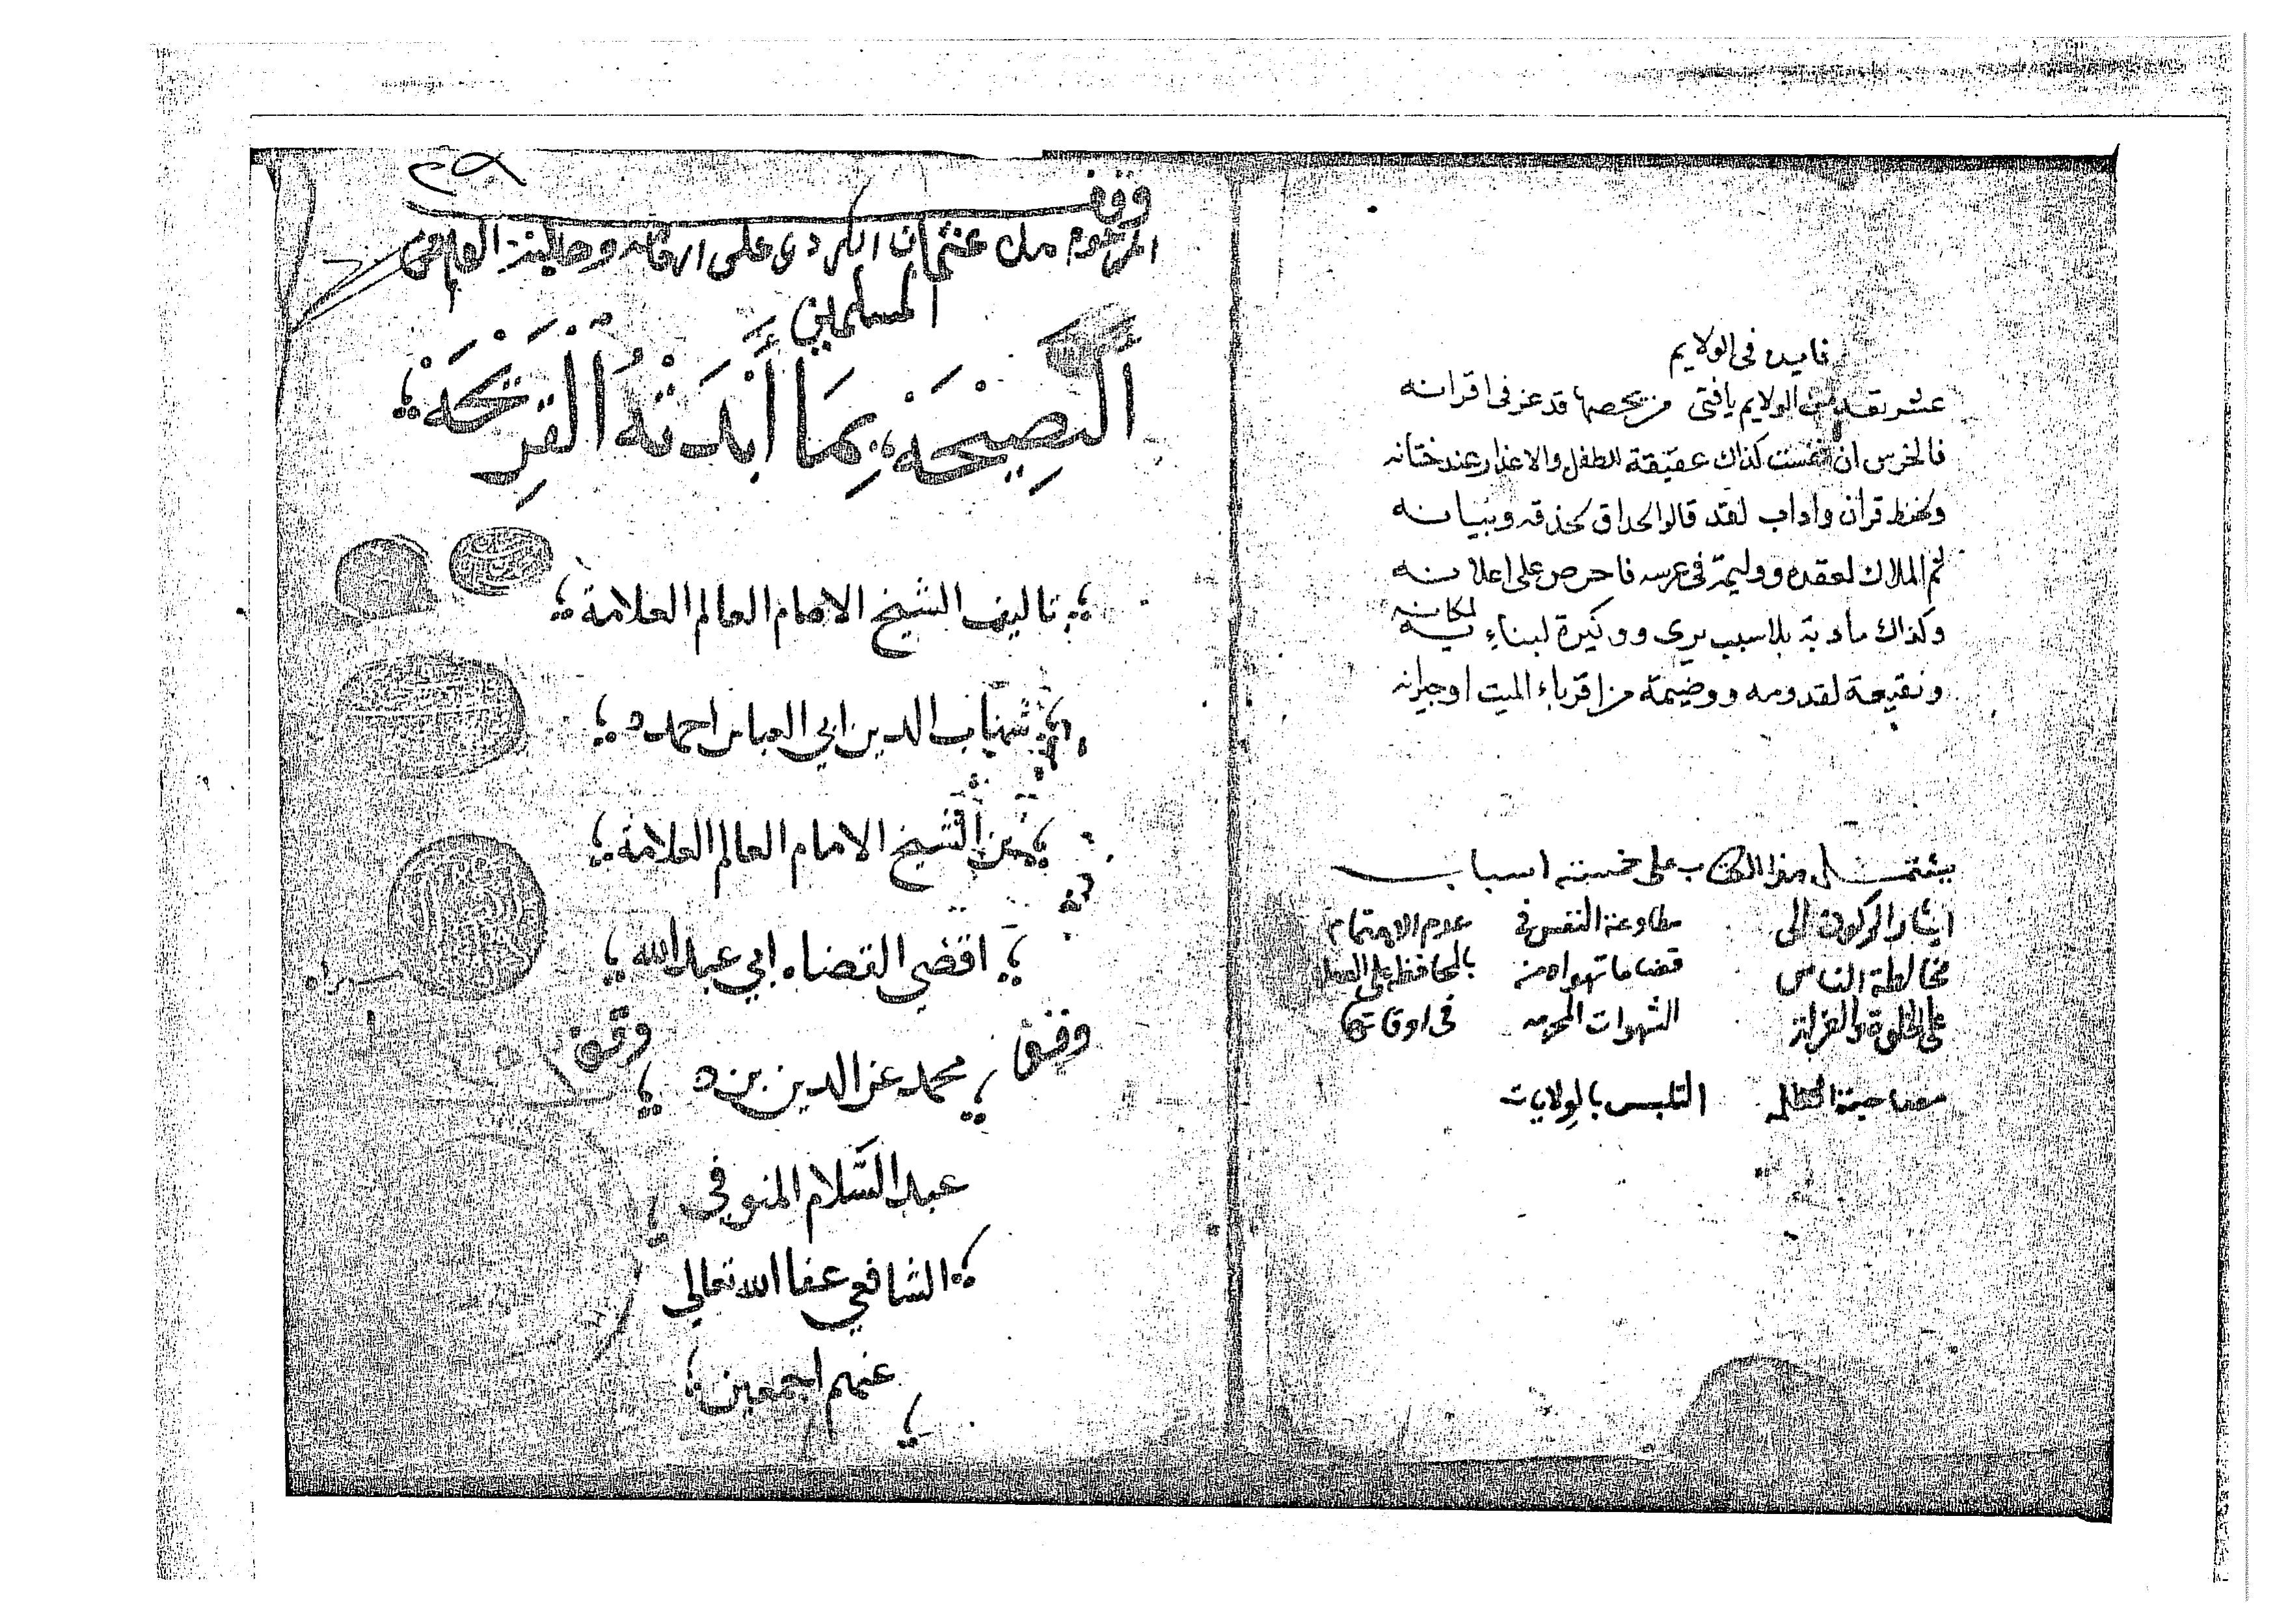 فايده في الولايم
عشر تعد من الولايم يافتى من يحصها قد عز في اقرانه
فالخرس ان نفست كذاك عقيقة للطفل والاعذار عند ختانه
ولحفظ قران واداب لقد قالوا الحداق لحذقه وبيانه
ثم الملاك لعقده ووليمة في عرسه فاحرص على اعلانه
وكذاك مادبة بلا سبب يرى ووكيرة لبناء يه لمكانه
ونقيعة لقدومه ووضيمة من اقرباء الميت او جيرانه
يشتمل هذا الكتاب على خمسة اسباب
ايثار الركون الى مطاوعة النفس في عدم الاهتمام
مخالطة الناس قضا ما تهواه من بالمحافظة على الصلاة
على الخلوة والعزلة الشهوات المحرمه في اوقاتها
مصاحبة الظلمه التلبس بالولايات
وقف
المرحوم ملا عثمان الكردي على ارقابه وطلبة العلم من
المسلمين
اَلنَّصِيْحَةُ بِمَا أَبْدَتْهُ الْقَرِيْحَةُ
تاليف الشيخ الامام العالم العلامة
شهاب الدين ابي العباس احمد
بن الشيخ الامام العالم العلامة
اقضي القضاه ابي عبد الله
وقف محمد عز الدين بن وقف
عبد السَّلام المنوفي
الشافعي عفا الله تعالي
عنهم اجمعين